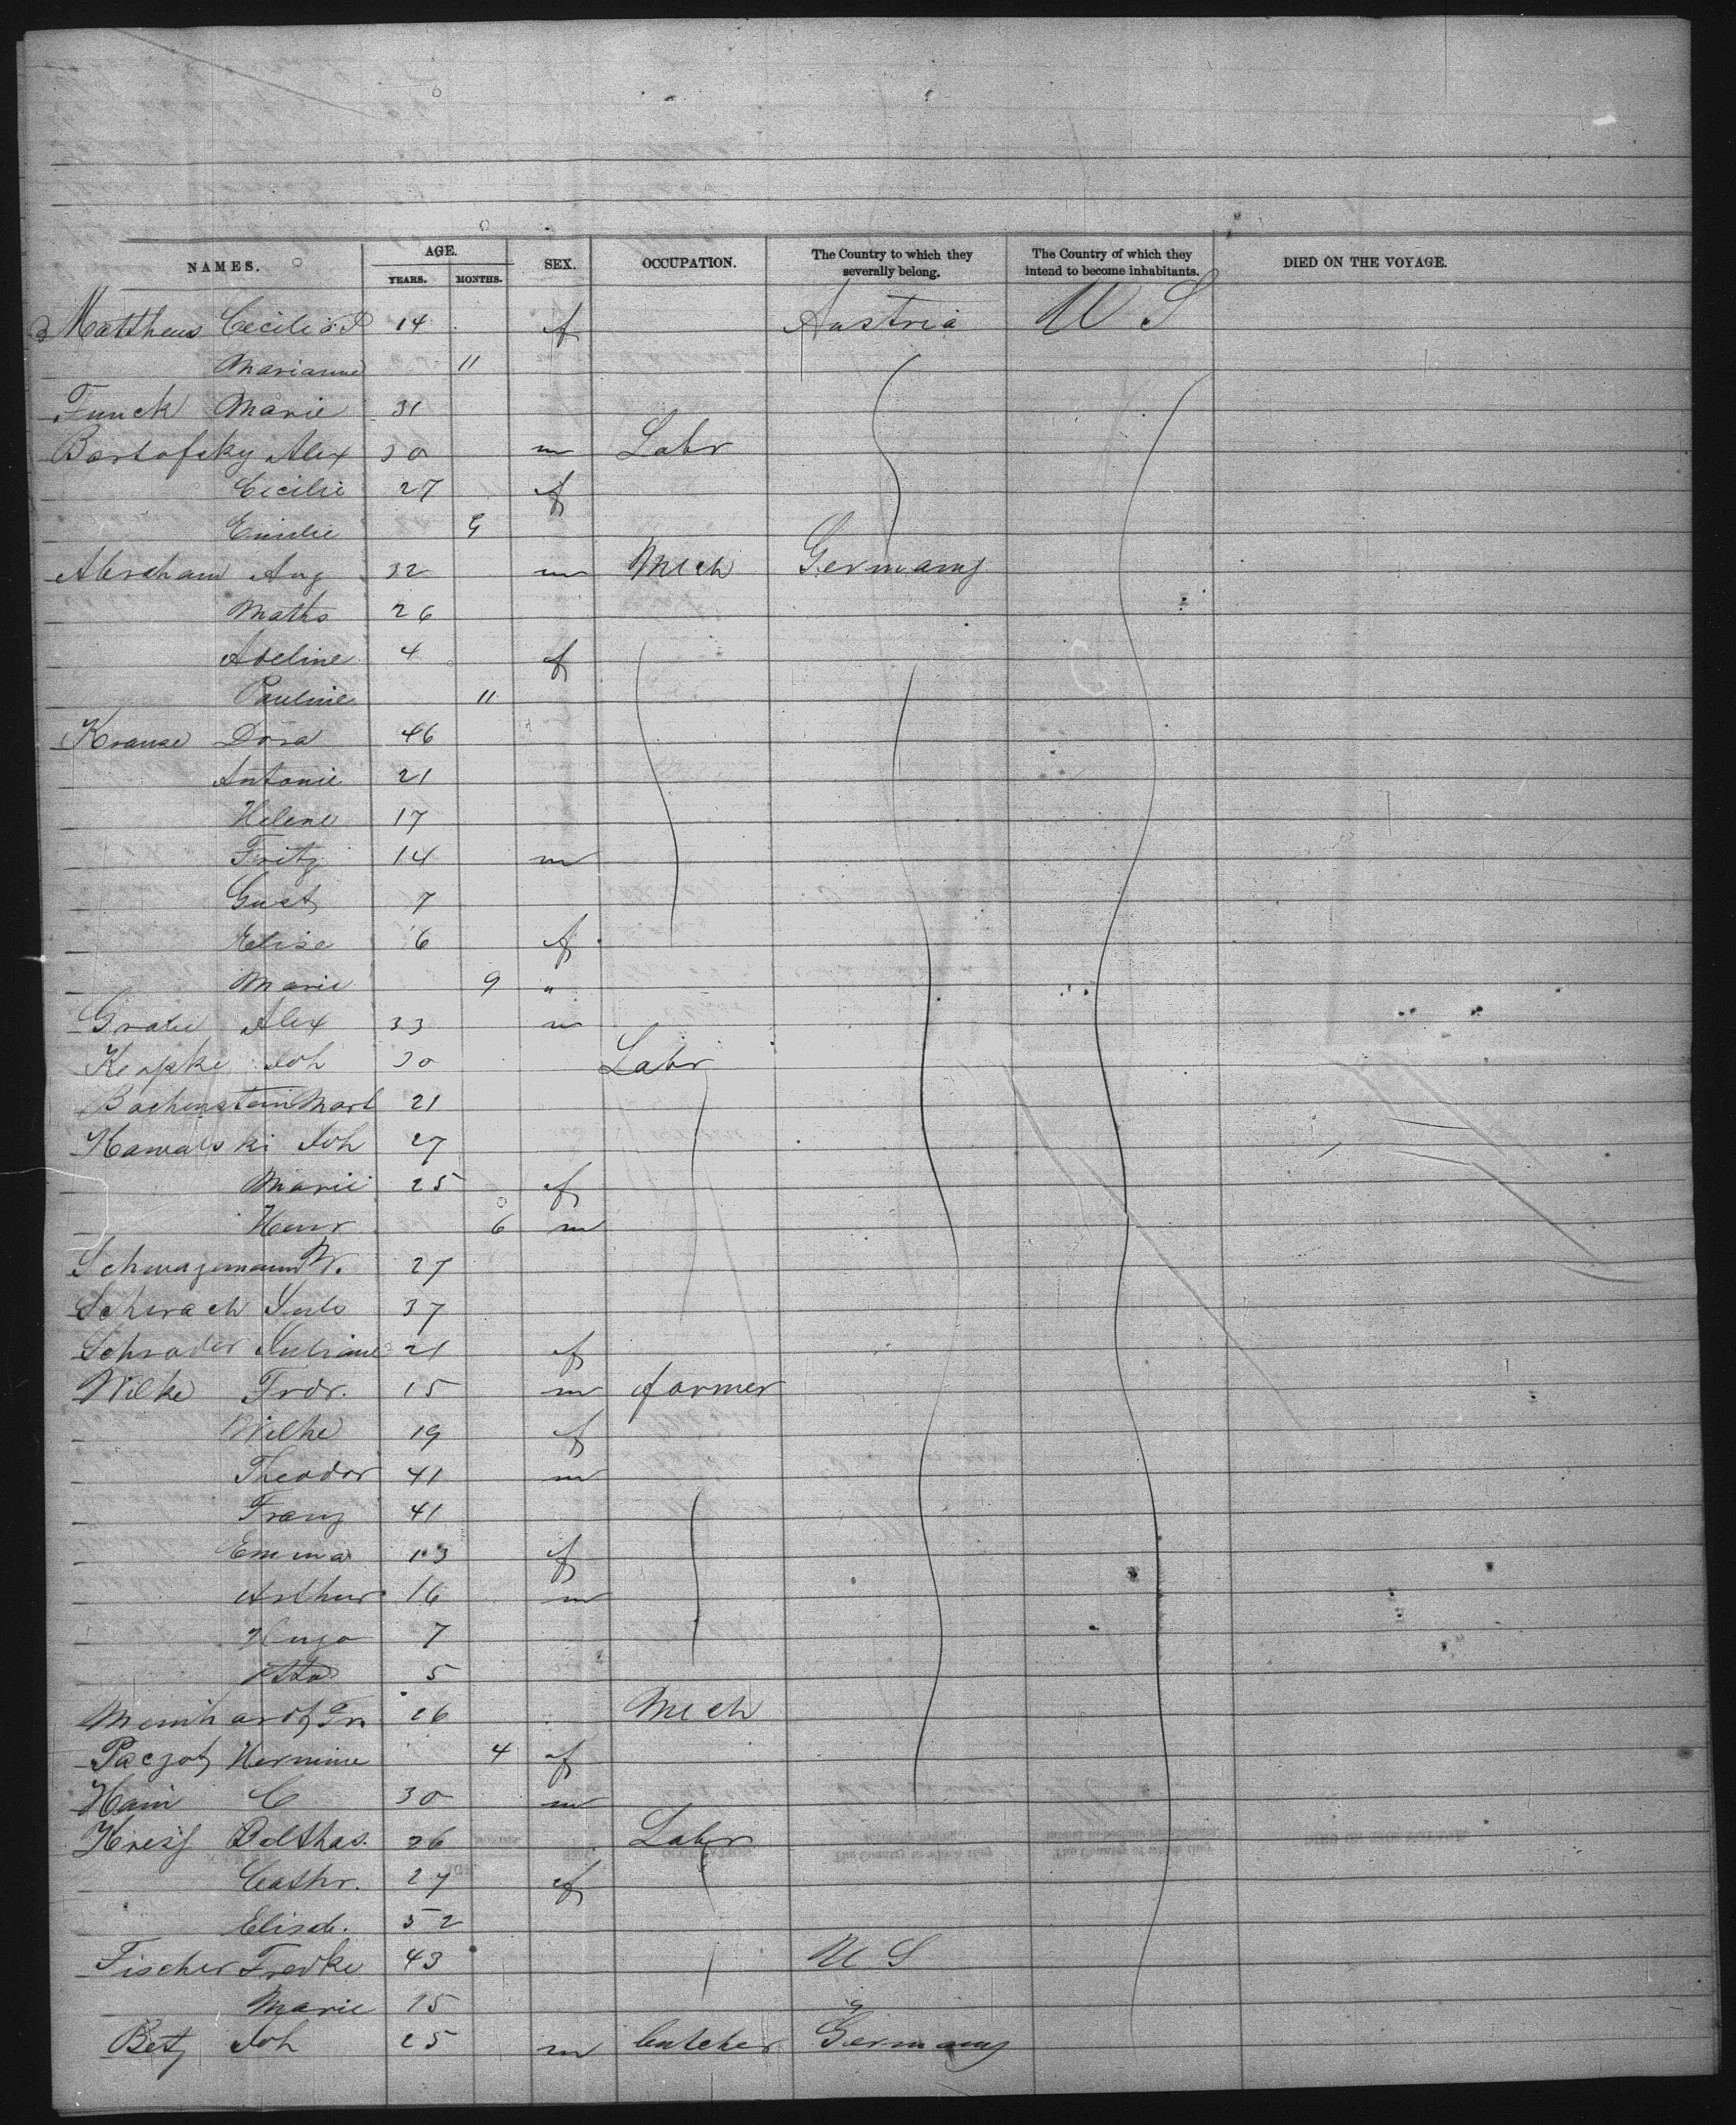 NAMES. AGE. SEX. OCCUPATION. The Country to which they severally belong. The Country of which they intend to become inhabitants. DIED ON THE VOYAGE.
YEARS. MONTHS.
Matthews Cecilia 14 f Austria U S
Marianne 11
Funck Marie 31
Bartofsky Alex 30 m Labr
Cecilie 27 f
Emilie 9
Abraham Aug 32 m Mech Germany
Maths 26
Adeline 4 f
Pauline 11
Krause Dora 46
Antonie 21
Helene 17
Fritz 14 m
Gust 7
Elise 6 f
Marie 9 "
Alex 33 m
Kepke Joh 30 Labr
Bachenstein Mart 21
Kawalski Joh 27
Marie 25 f
Henr 6 m
Schwagemann W. 27
Schirach Juls 37
Schrader Juliane 21 f
Wilke Frdr. 15 m farmer
Wilhe 19 f
Theodor 41 m
Franz 41
Emma 13 f
Arthur 16 m
Hugo 7
Otto 5
Meinhardt Fr 26 Mech
Paczot Hermine 4 f
Hain C 30 m
Balthas. 26 Labr
Cathr. 27 f
Elisab. 52
Fischer Fredke 43 U S
Marie 15
Betz Joh 25 m butcher Germany